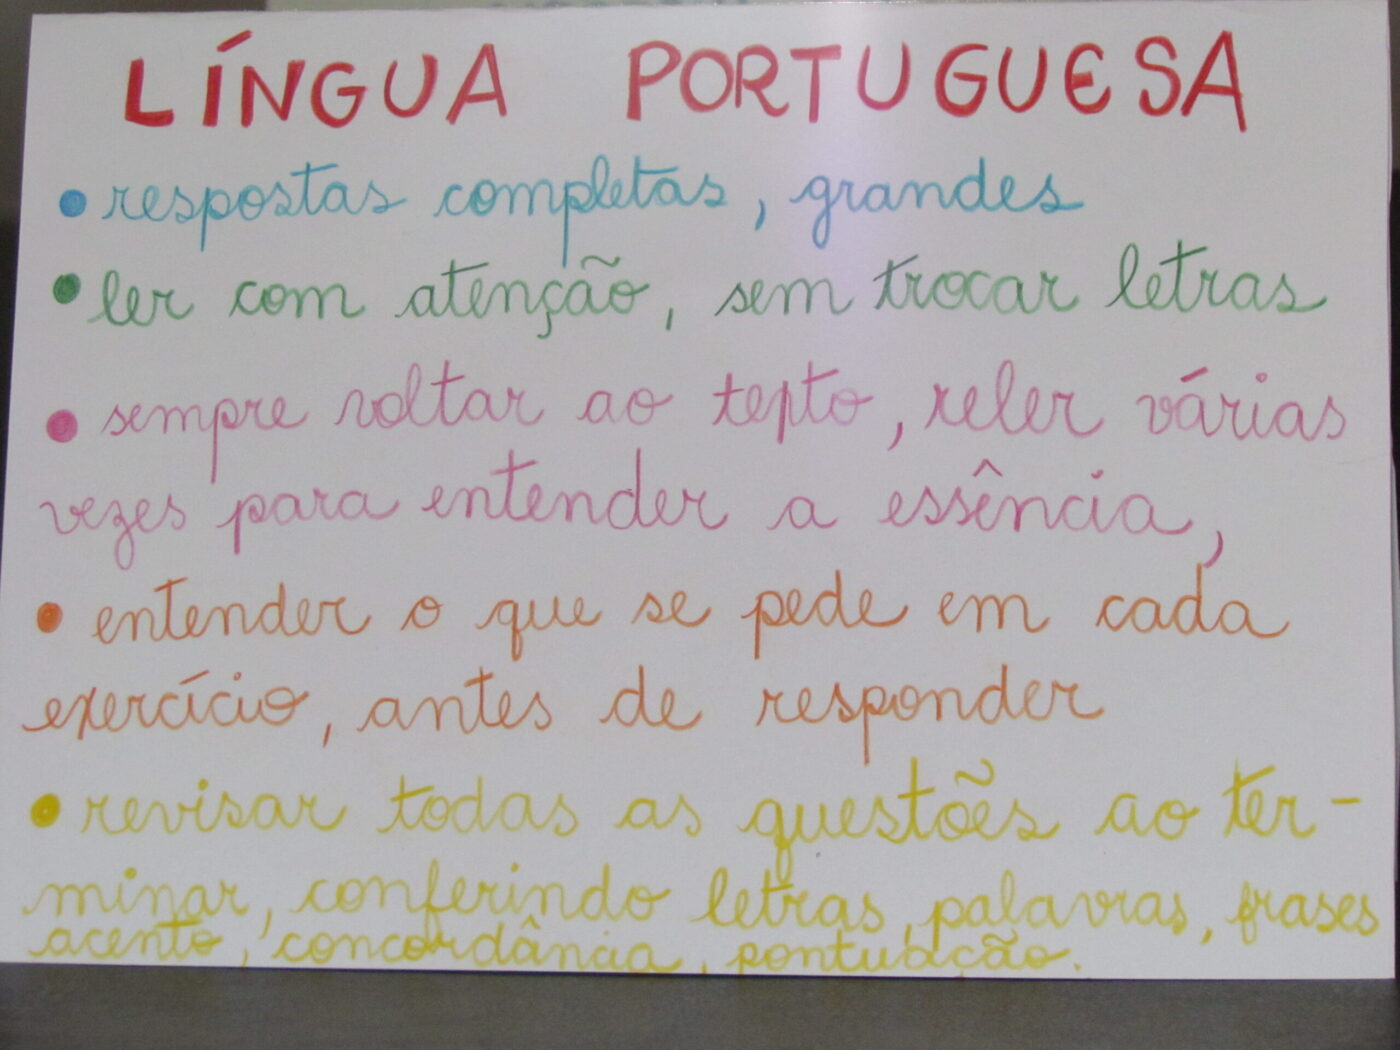 LÍNGUA PORTUGUESA
• respostas completas, grandes
• ler com atenção, sem trocar letras
• sempre voltar ao texto, reler várias
vezes para entender a essência,
• entender o que se pede em cada
exercício, antes de responder
• revisar todas as questões ao ter-
minar, conferindo letras, palavras, frases
acento, concordância, pontuação.